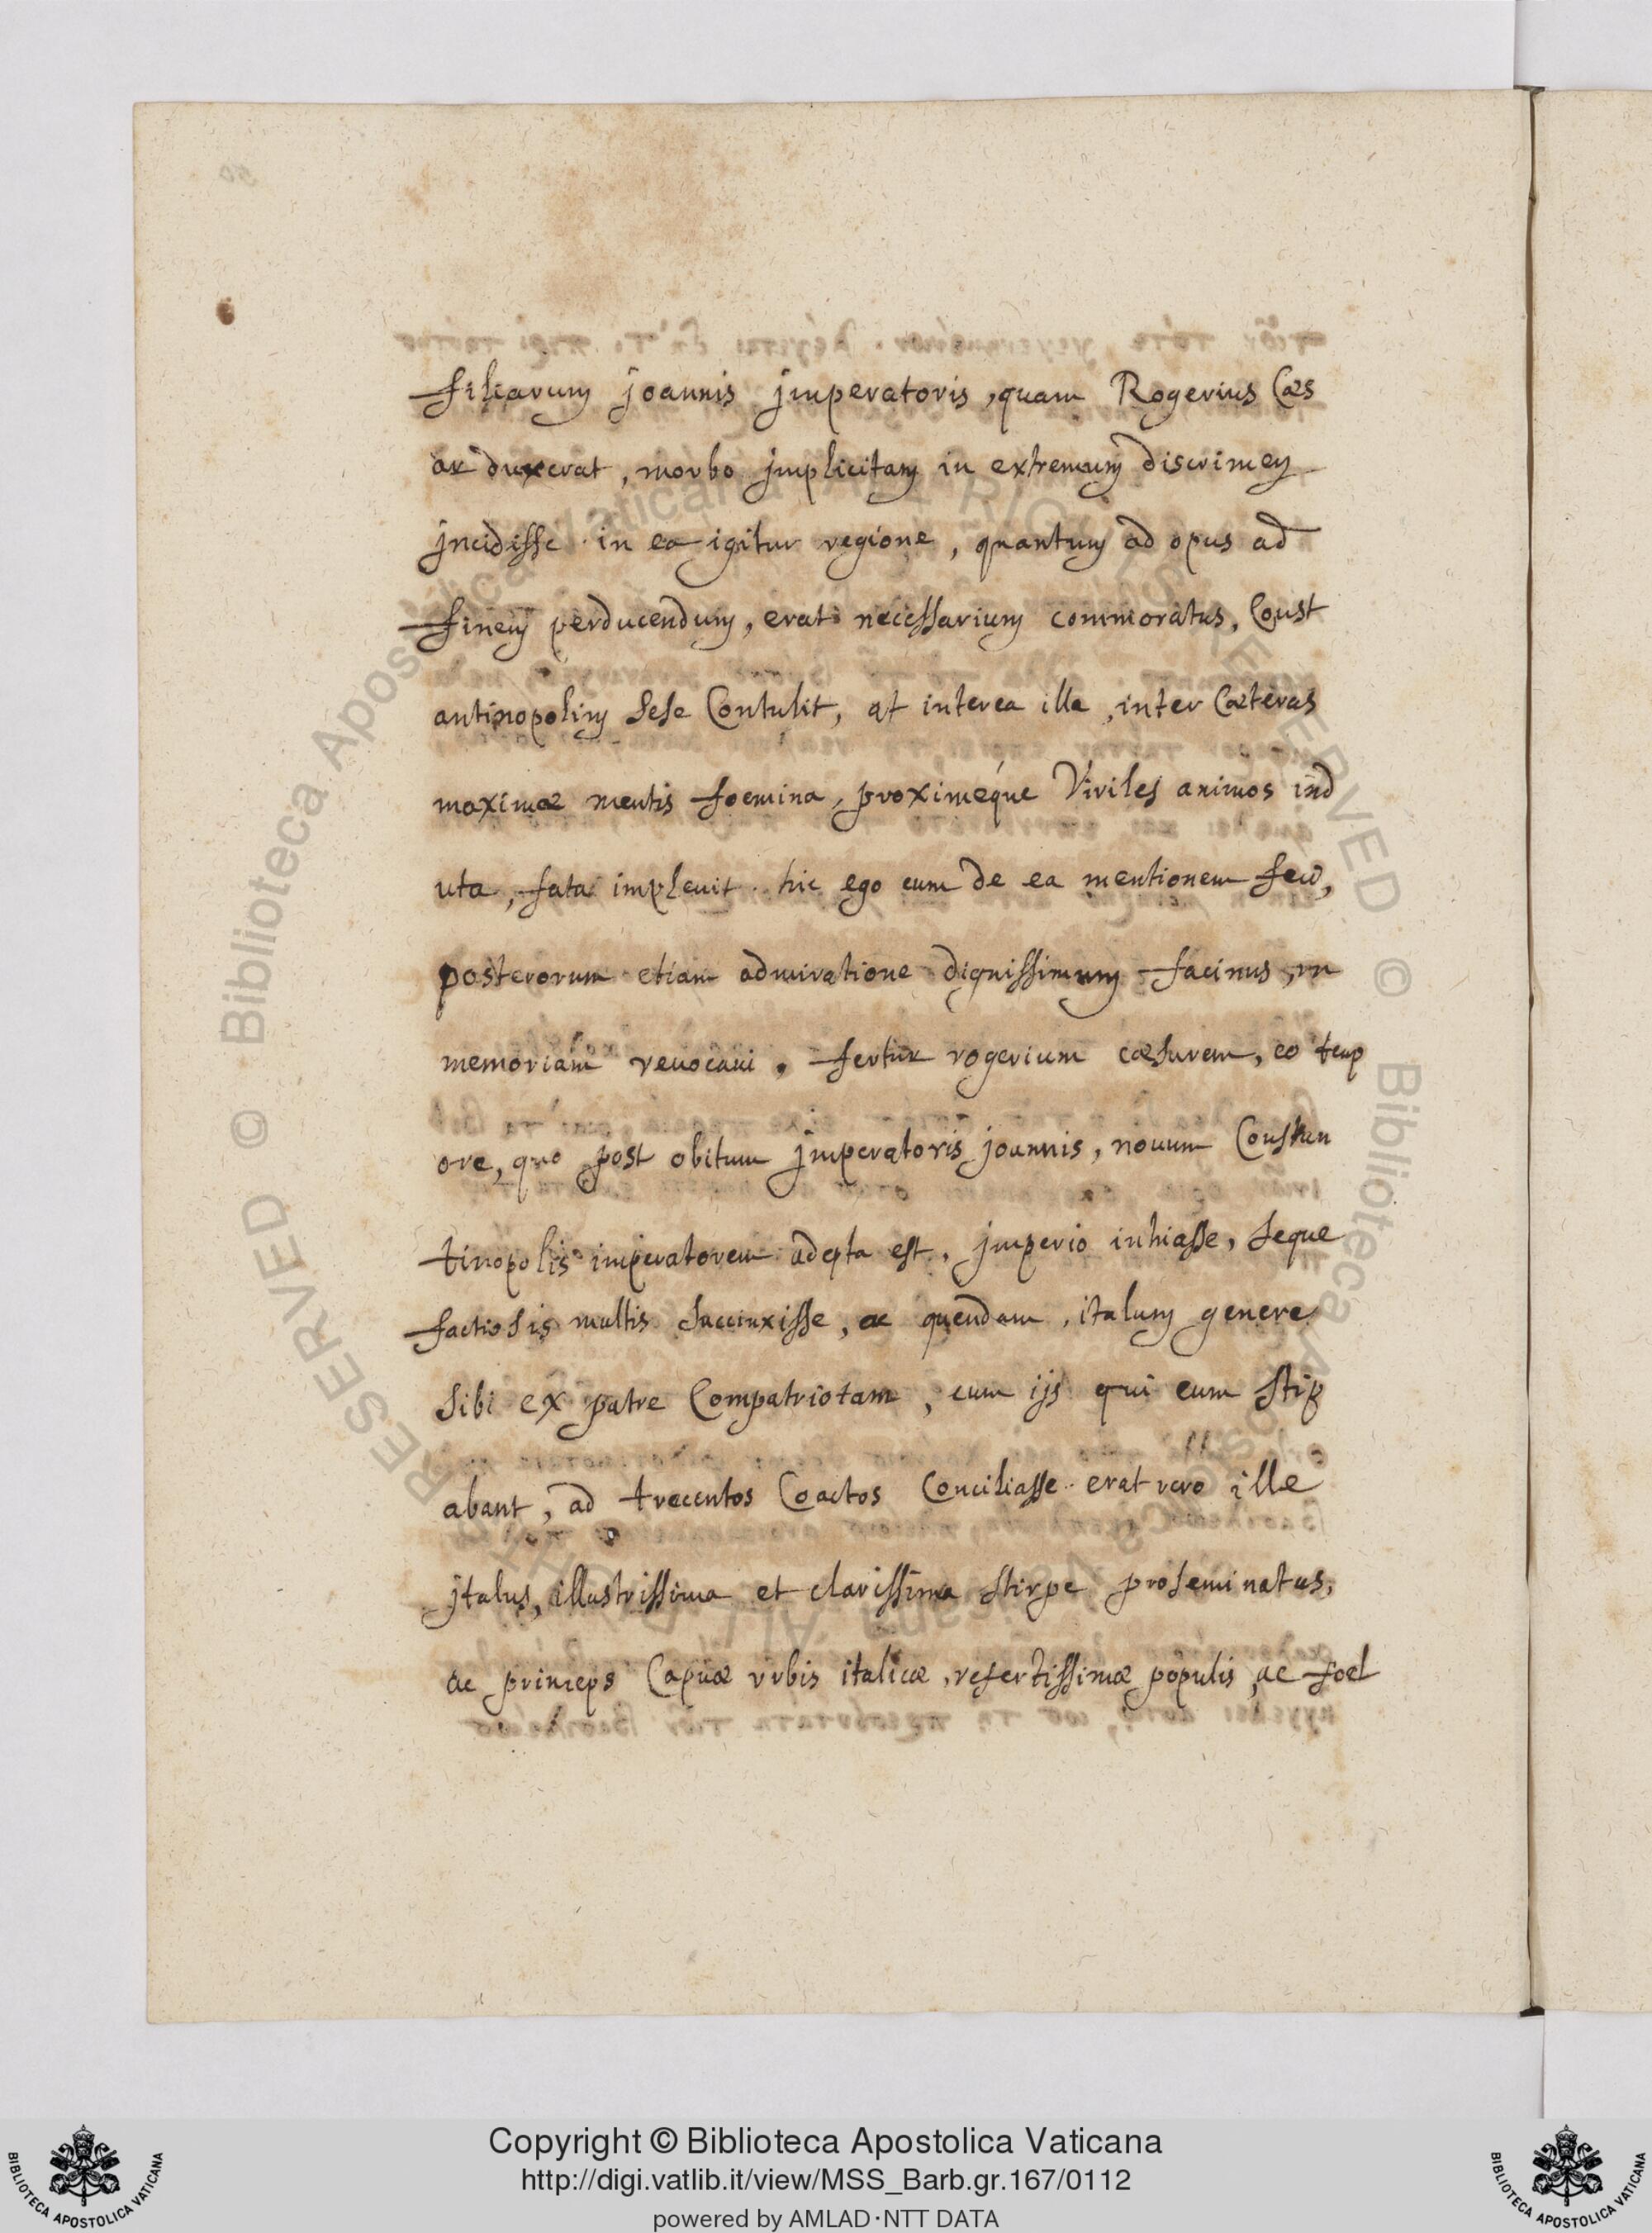 filiarum joannis jmperatoris, quam Rogerius Cæs
ar duxerat, morbo jmplicitam in extremum discrimen
jncidisse. in ea igitur regione, quantum ad opus ad
finem perducendum, erat necessarium commoratus, Const
antinopolim sese Contulit, at interea illa, inter Cæteras
maximæ mentis foemina, proximéque Viriles animos ind
uta, fata impleuit. hic ego cum de ea mentionem
posterorum etiam admiratione dignissimum facinus, in
memoriam reuocaui. fertur rogerium cæsarem, eo temp
ore, quo post obitum jmperatoris joannis, nouum Constan
tinopolis imperatorem adepta est, jmperio inhiasse, seque
factiosis multis succinxisse, ac quendam, italum genere
sibi ex patre Compatriotam, cum ijs qui eum stip
abant, ad trecentos Coactos Conciliasse. erat vero ille
jtalus, illustrissima et clarissima stirpe proseminatus,
ac princeps Capuæ vrbis italicæ, refertissimæ populis, ac foel
© Biblioteca Apostolica Vaticana ALL RIGHTS RESERVED
© Biblioteca Apostolica Vaticana ALL RIGHTS RESERVED
Copyright © Biblioteca Apostolica Vaticana
http://digi.vatlib.it/view/MSS_Barb.gr.167/0112
powered by AMLAD·NTT DATA
BIBLIOTECA APOSTOLICA VATICANA
BIBLIOTECA APOSTOLICA VATICANA